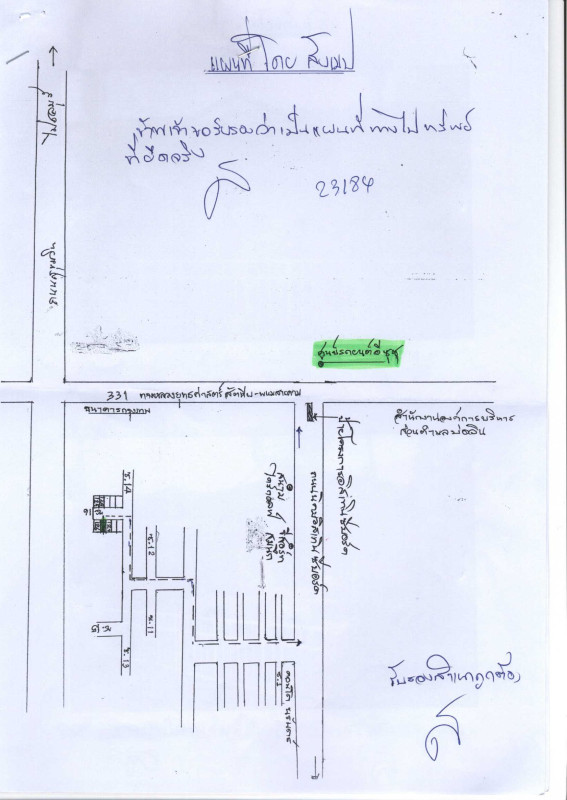 แผนที่ โดย สังเขป
ข้าพเจ้าขอรับรองว่าเป็นแผนที่ทางไปทรัพย์
ที่ยึดจริง
23184
ศูนย์รถยนต์อีซูซุ
331 ทางหลวงยุทธศาสตร์สัตหีบ-พนมสารคาม
ธนาคารกรุงเทพ
สำนักงานองค์การบริหาร
ส่วนตำบลบ่อวิน
สนาม
ไดร์กอล์ฟ
ซ.14
16
ซ.12
ซ.11
ซ.15
ซ.13
ซ.1
รับรองสำเนาถูกต้อง